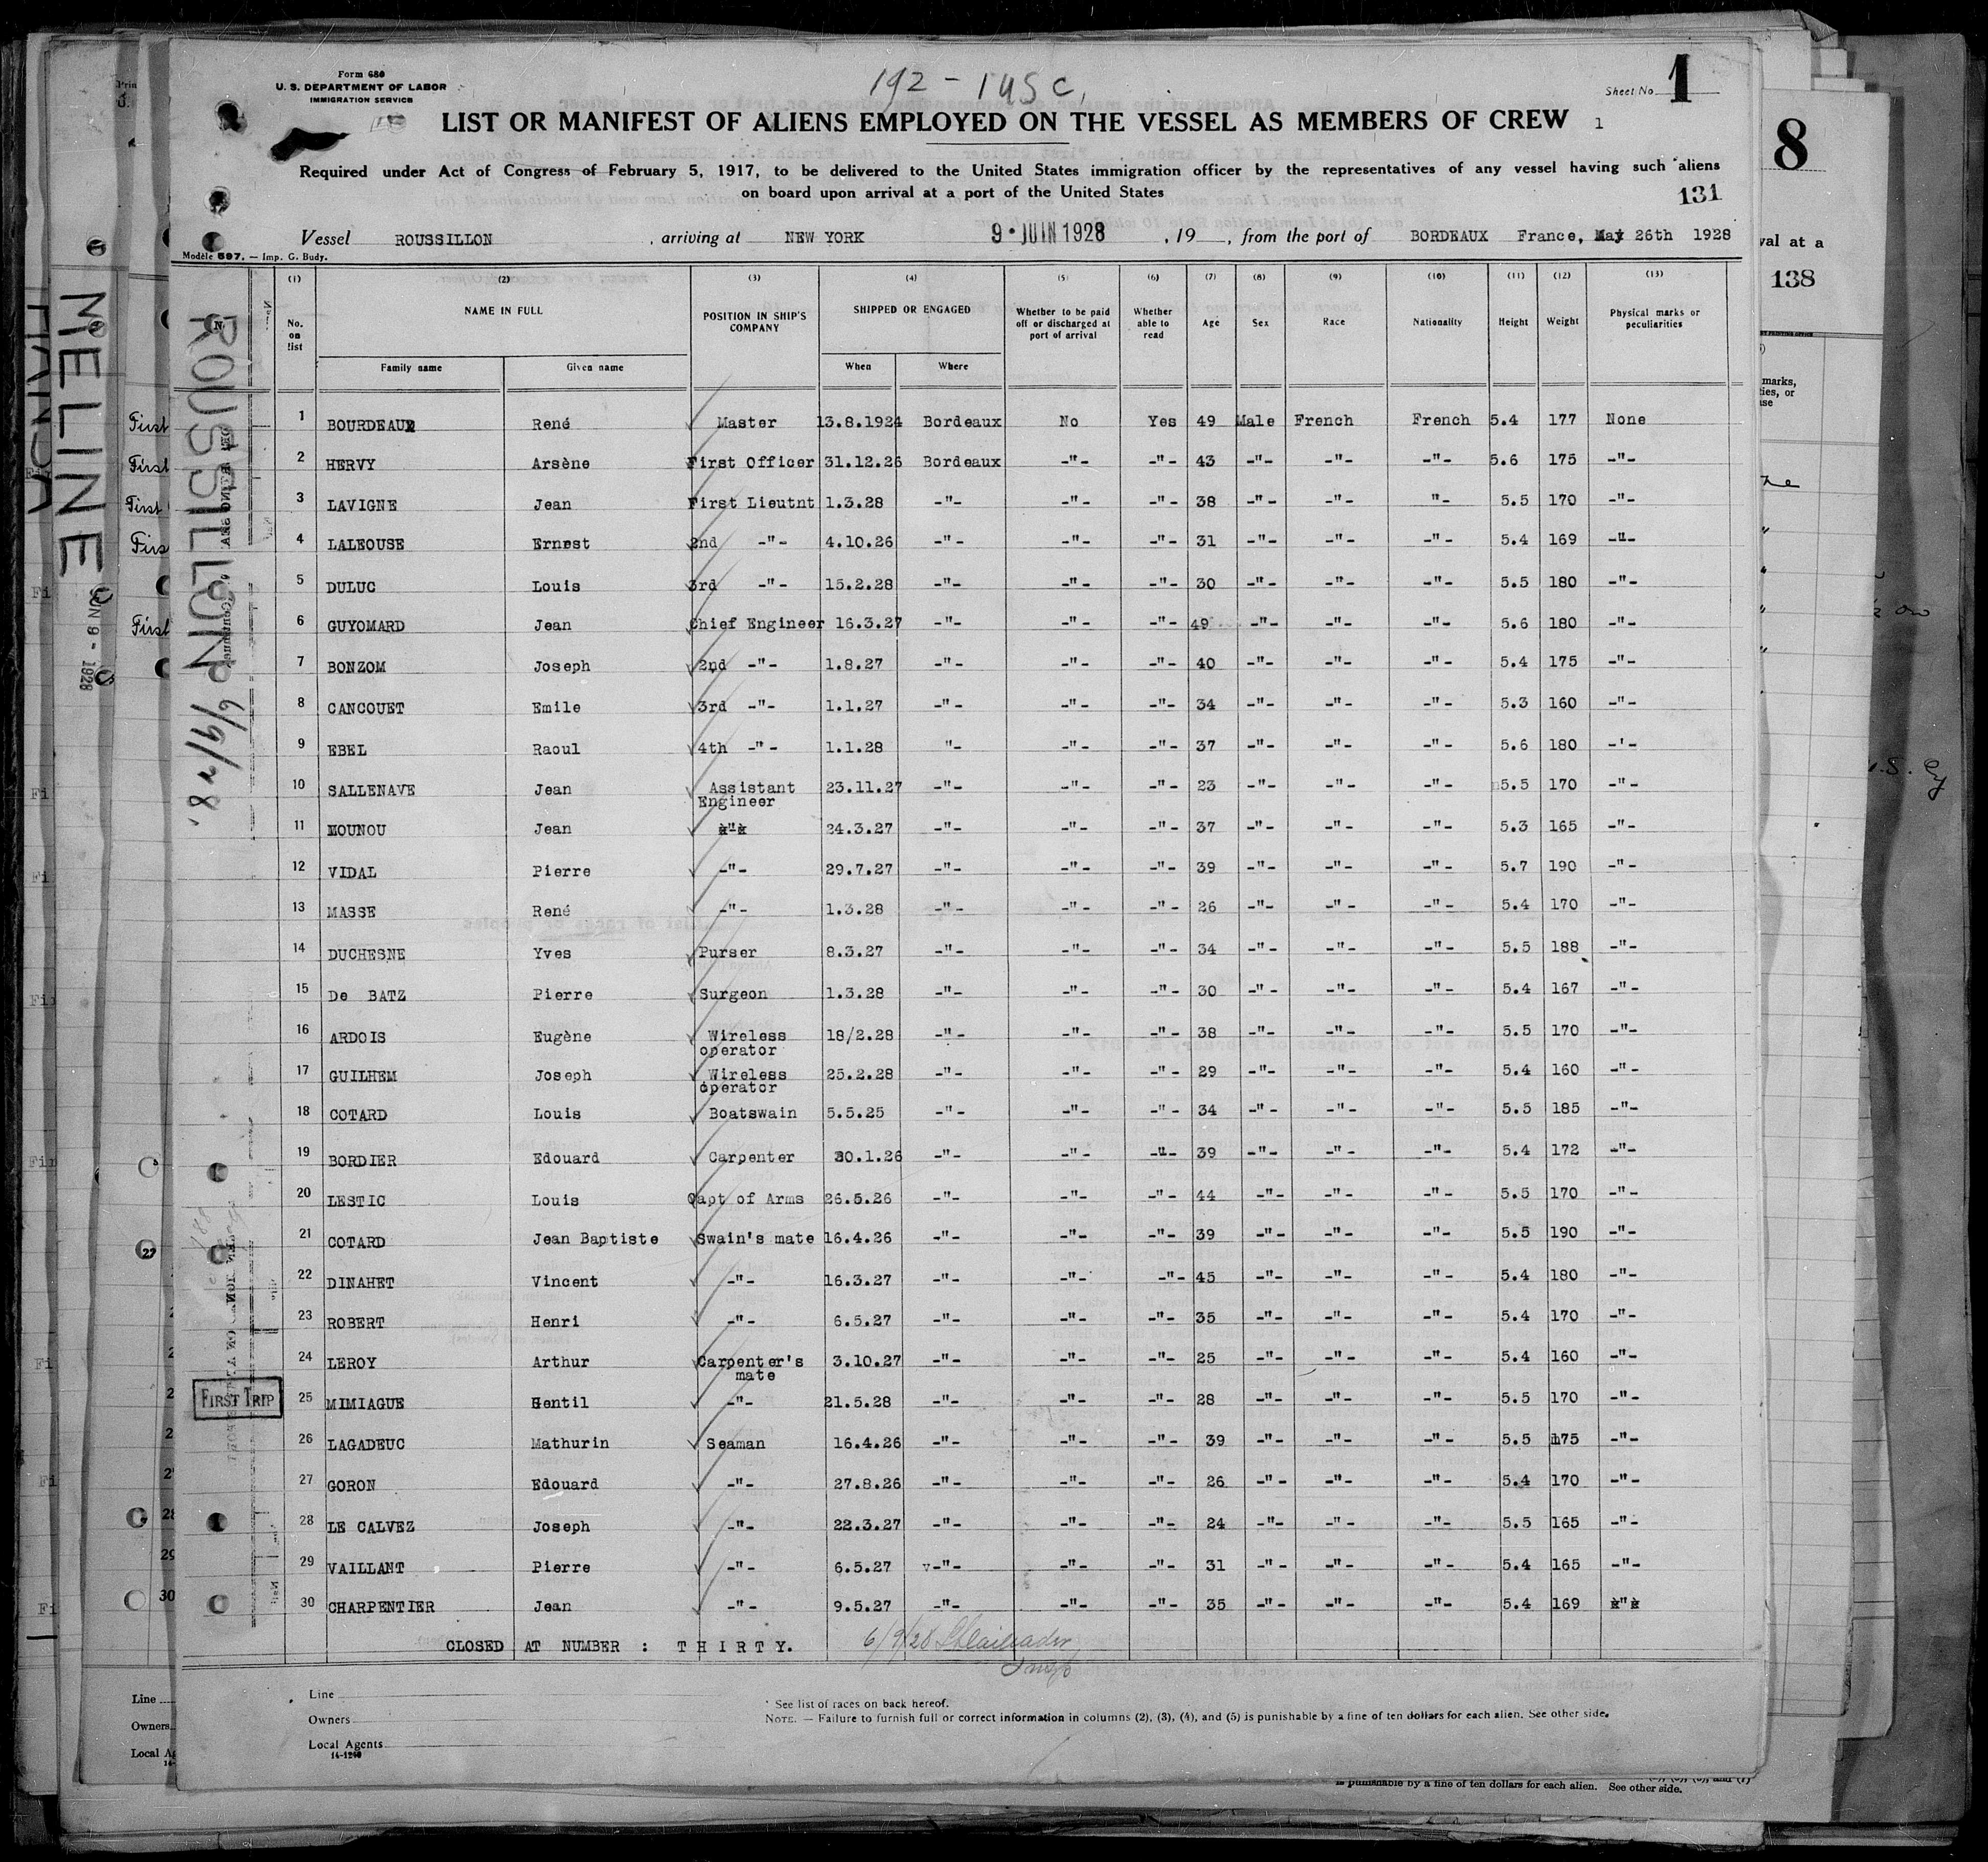 Form 680
U. S. DEPARTMENT OF LABOR
IMMIGRATION SERVICE
192 - 1 USC,
Sheet No 1
LIST OR MANIFEST OF ALIENS EMPLOYED ON THE VESSEL AS MEMBERS OF CREW 1
Required under Act of Congress of February 5, 1917, to be delivered to the United States immigration officer by the representatives of any vessel having such aliens
on board upon arrival at a port of the United States
131
Vessel ROUSSILLON , arriving at NEW YORK 9 · JUIN 1928 , 19 , from the port of BORDEAUX France, May 26th 1928
Modèle 597. — Imp. G. Budy.
(1) (2) (3) (4) (5) (6) (7) (8) (9) (10) (11) (12) (13)
No. on list NAME IN FULL POSITION IN SHIP'S COMPANY SHIPPED OR ENGAGED Whether to be paid off or discharged at port of arrival Whether able to read Age Sex Race Nationality Height Weight Physical marks or peculiarities
Family name Given name When Where
1 BOURDEAUX René Master 13.8.1924 Bordeaux No Yes 49 Male French French 5.4 177 None
2 HERVY Arsène First Officer 31.12.26 Bordeaux -"- -"- 43 -"- -"- -"- 5.6 175 -"-
3 LAVIGNE Jean First Lieutnt 1.3.28 -"- -"- -"- 38 -"- -"- "- 5.5 170 -"-
4 LALEOUSE Ernest 2nd -"- 4.10.26 -"- -"- -"- 31 -"- -"- -"- 5.4 169 -"-
5 DULUC Louis 3rd -"- 15.2.28 -"- -"- -"- 30 -"- -"- -"- 5.5 180 -"-
6 GUYOMARD Jean Chief Engineer 16.3.27 -"- -"- -"- 49 -"- -"- -"- 5.6 180 -"-
7 BONZOM Joseph 2nd -"- 1.8.27 -"- -"- -"- 40 -"- -"- -"- 5.4 175 -"-
8 CANCOUET Emile 3rd -"- 1.1.27 -"- -"- -"- 34 -"- -"- -"- 5.3 160 -"-
9 EBEL Raoul 4th -"- 1.1.28 "- -"- -"- 37 -"- -"- -"- 5.6 180 -'-
10 SALLENAVE Jean Assistant Engineer 23.11.27 -"- -"- -"- 23 -"- -"- -"- 5.5 170 -"-
11 MOUNOU Jean -"- 24.3.27 -"- -"- -"- 37 -"- -"- -"- 5.3 165 -"-
12 VIDAL Pierre -"- 29.7.27 -"- -"- -"- 39 -"- -"- -"- 5.7 190 -"-
13 MASSE René -"- 1.3.28 -"- -"- -"- 26 -"- -"- -"- 5.4 170 -"-
14 DUCHESNE Yves Purser 8.3.27 -"- -"- -"- 34 -"- -"- -"- 5.5 188 -"-
15 De BATZ Pierre Surgeon 1.3.28 -"- -"- -"- 30 -"- -"- -"- 5.4 167 -"-
16 ARDOIS Eugène Wireless operator 18/2.28 -"- -"- -"- 38 -"- -"- -"- 5.5 170 -"-
17 GUILHEM Joseph Wireless operator 25.2.28 -"- -"- -"- 29 -"- -"- -"- 5.4 160 -"-
18 COTARD Louis Boatswain 5.5.25 -"- -"- -"- 34 -"- -"- -"- 5.5 185 -"-
19 BORDIER Edouard Carpenter 30.1.26 -"- -"- -"- 39 -"- -"- -"- 5.4 172 -"-
20 LESTIC Louis Capt of Arms 26.5.26 -"- -"- -"- 44 -"- -"- -"- 5.5 170 -"-
21 COTARD Jean Baptiste Swain's mate 16.4.26 -"- -"- -"- 39 -"- -"- -"- 5.5 190 -"-
22 DINAHET Vincent -"- 16.3.27 -"- -"- -"- 45 -"- -"- -"- 5.4 180 -"-
23 ROBERT Henri -"- 6.5.27 -"- -"- -"- 35 -"- -"- -"- 5.4 170 -"-
24 LEROY Arthur Carpenter's mate 3.10.27 -"- -"- -"- 25 -"- -"- -"- 5.4 160 -"-
FIRST TRIP 25 MIMIAGUE Gentil -"- 21.5.28 -"- -"- -"- 28 -"- -"- -"- 5.5 170 -"-
26 LAGADEUC Mathurin Seaman 16.4.26 -"- -"- -"- 39 -"- -"- -"- 5.5 175 -"-
27 GORON Edouard -"- 27.8.26 -"- -"- -"- 26 -"- -"- -"- 5.4 170 -"-
28 LE CALVEZ Joseph -"- 22.3.27 -"- -"- -"- 24 -"- -"- -"- 5.5 165 -"-
29 VAILLANT Pierre -"- 6.5.27 -"- -"- -"- 31 -"- -"- -"- 5.4 165 -"-
30 CHARPENTIER Jean -"- 9.5.27 -"- -"- -"- 35 -"- -"- -"- 5.4 169 -"-
CLOSED AT NUMBER : THIRTY. 6/9/28
Line
Owners
Local Agents
14-1240
See list of races on back hereof.
NOTE. — Failure to furnish full or correct information in columns (2), (3), (4), and (5) is punishable by a fine of ten dollars for each alien. See other side.
ROUSSILLON 6/9/28.
MELINE
JUN 9 - 1928
First
First
First
First
First
8
val at a
138
marks,
27
28
29
30
Line
Owners
Local
is punishable by a fine of ten dollars for each alien. See other side.